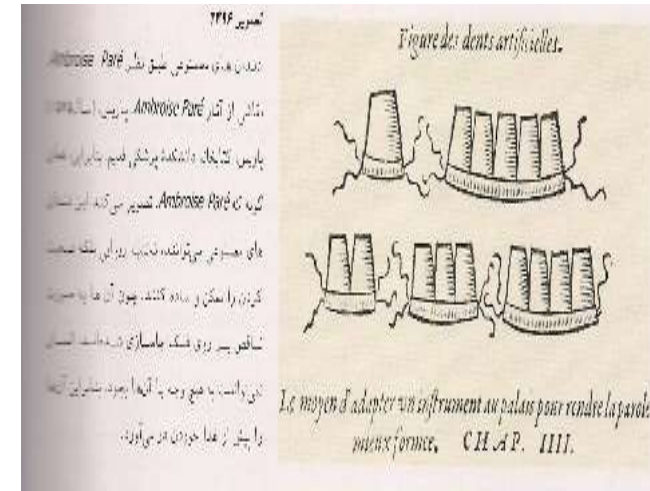 تصویر ۲۳۹۶
دندان های مصنوعی طبق نظر Ambroise Paré
نقاشی از آثار Ambroise Paré پاریس،
پاریس، کتابخانه دانشکدهٔ پزشکی قدیم. بنابراین همان
گونه که Ambroise Paré تصویر می کند این دندان
های مصنوعی می‌توانند، نه‌تنها زیبائی بلکه صحبت
کردن را ممکن و ساده کنند. چون آن ها به صورت
ناقص بر روی فک جاسازی شده‌اند، انسان
نمی‌توانست به هیچ وجه با آن‌ها بجود، بنابراین آن‌ها
را پیش از غذا خوردن در می‌آورد.
Figure des dents artificielles.
Le moyen d'adapter un instrument au palais pour rendre la parole
mieux formee. CHAP. IIII.